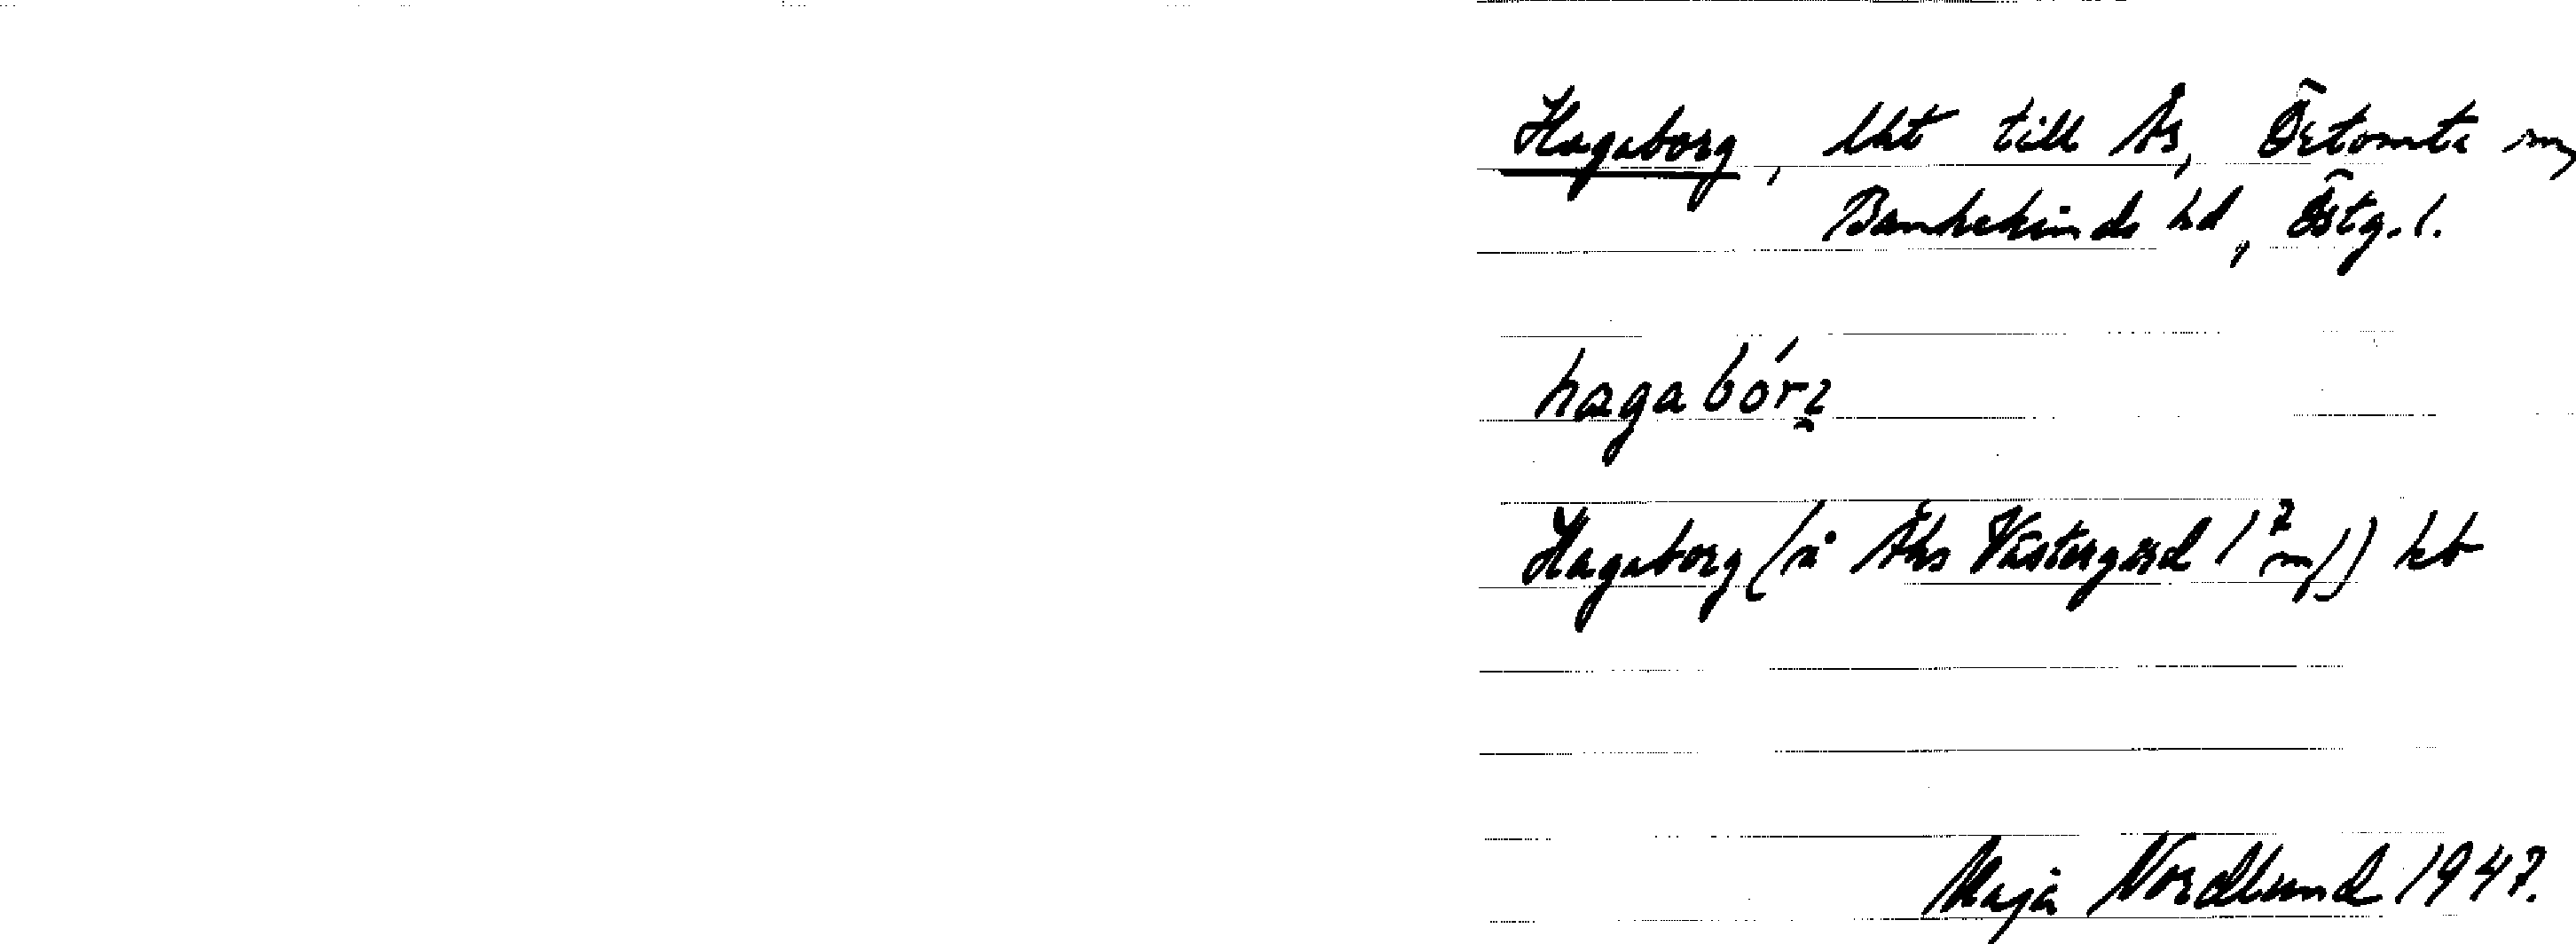 Hagaborg, lht till Ås, Örtomta sn,
Bankekinds hd, Östg. l.
hagabórz
Hagaborg (å Åhs Västergård 1 2 mf) kb
Maja Nordlund 1947.